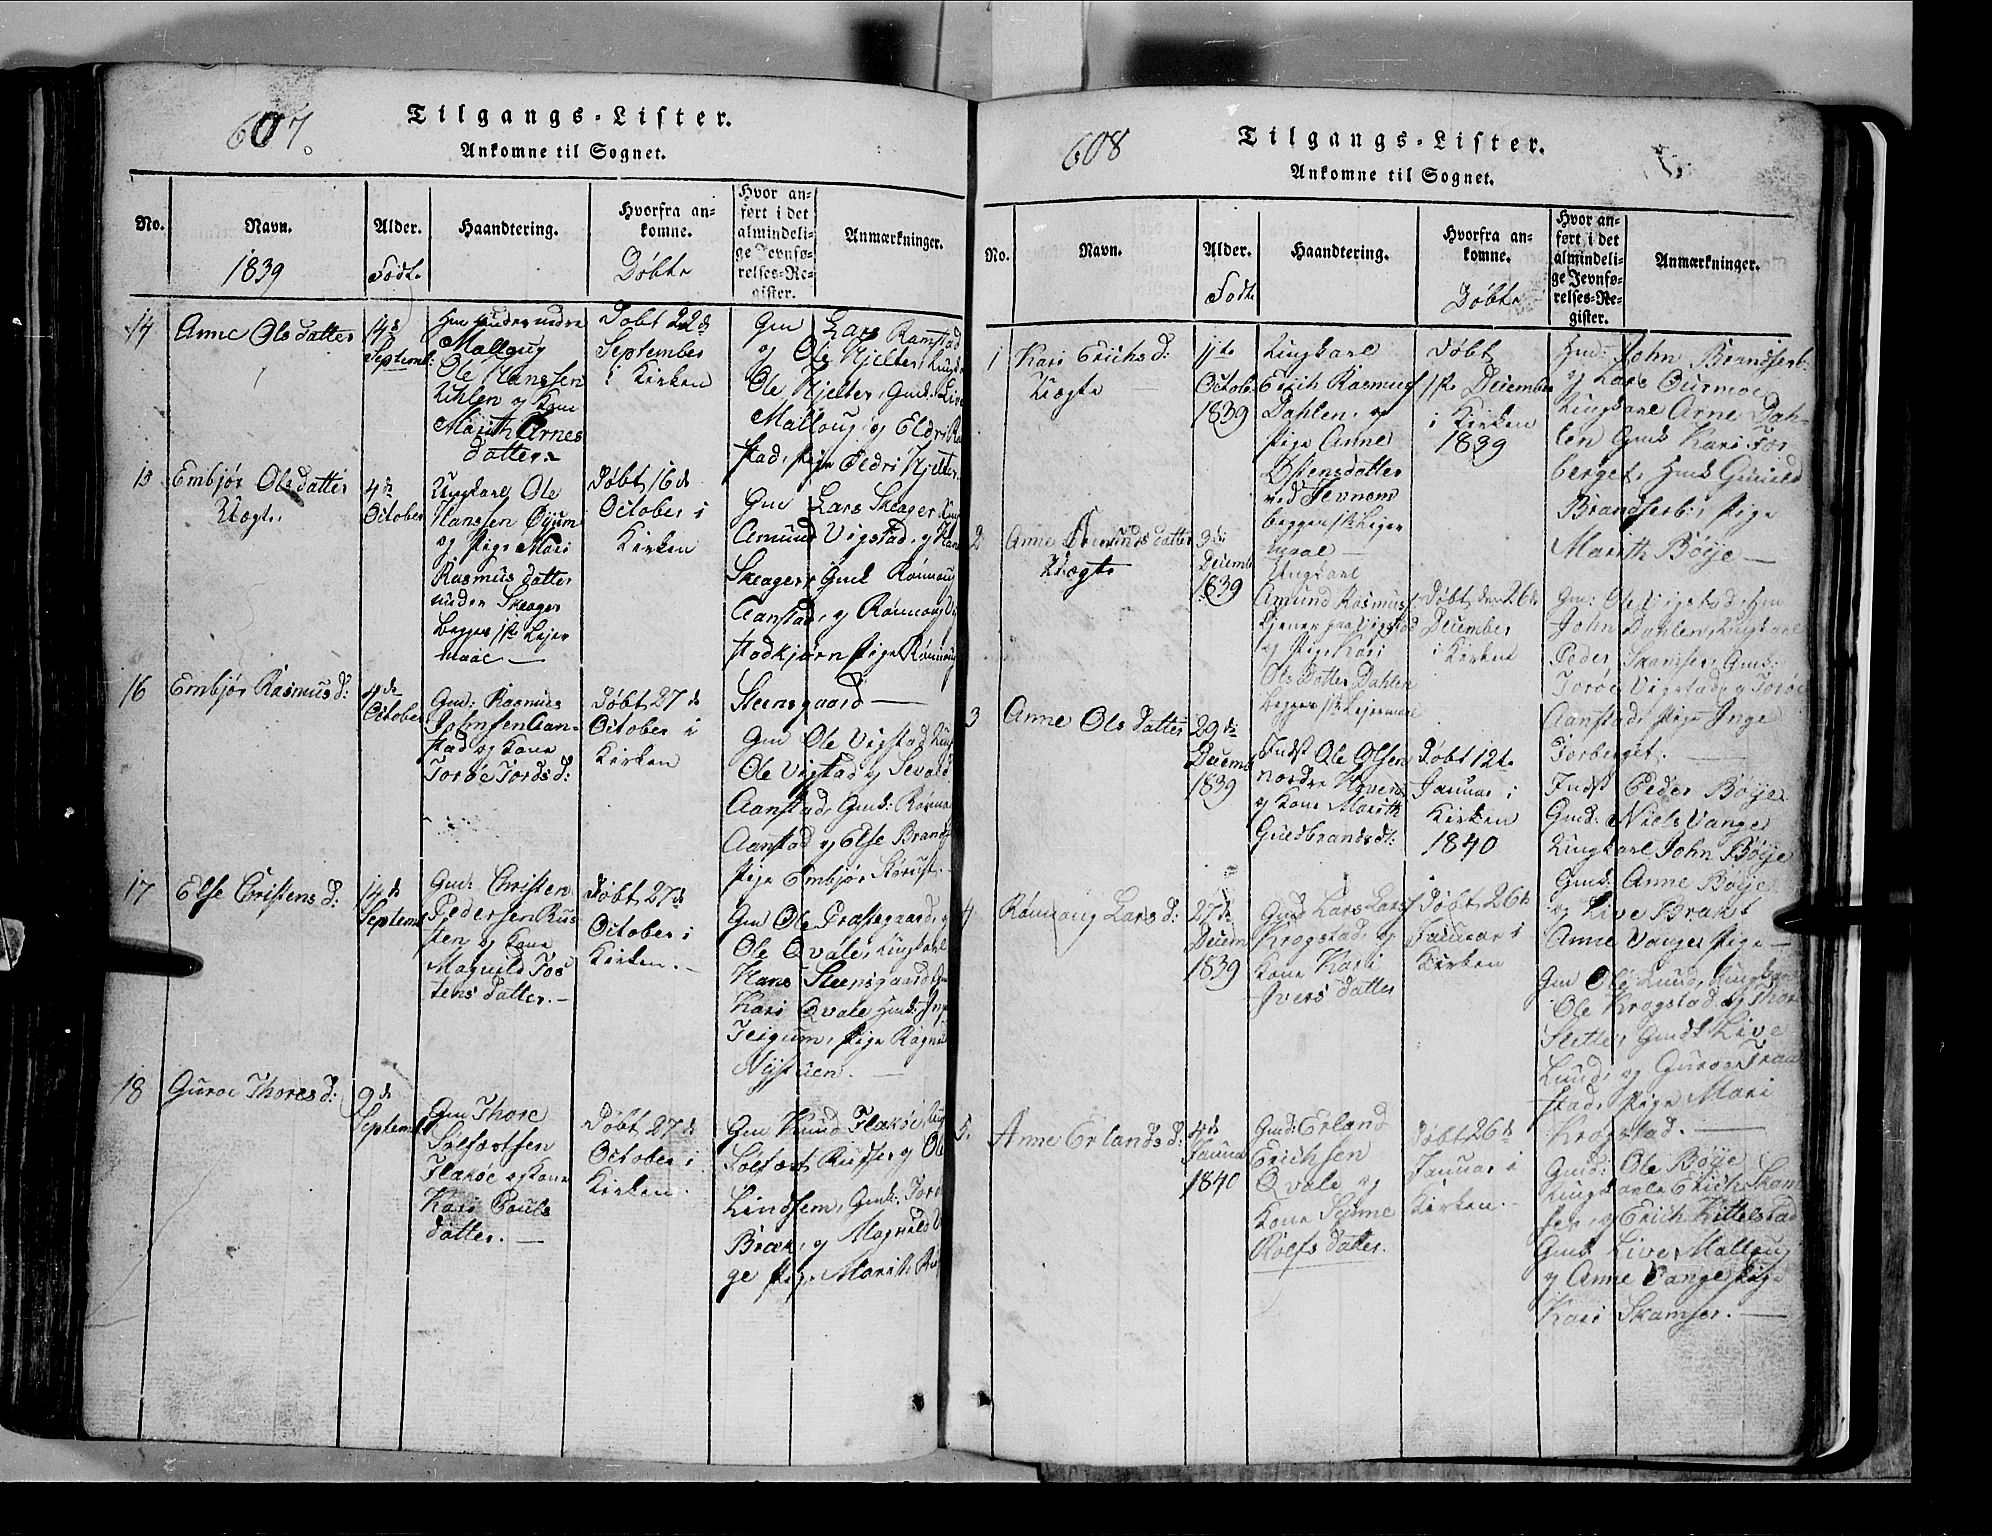 607.
Tilgangs-Lister.
Ankomne til Sognet.
No.
Navn.
1839
Alder.
Fødte
Haandtering.
Hvorfra an-
komne.
Døbte
Hvor an-
ført i det
almindeli-
ge Jevnfø-
relses-Re-
gister.
Anmærkninger.
14
Anne Olsdatter
14de
Septemb:
Malloug
Ole Hanssen
Uhlen og Kone
Marith Arnes
datter
Døbt 22de
September
i Kirken
Gm Lars Ramstad
og Ole Hjelter, Ungk
Ole Hjelter, Gmds Live
Malloug, og Eldri Ra
stad, Pige Eldri Hjelter
15
Embjør Olsdatter
Uægte
4de
October
Ungkarl Ole
Hanssen Øyum
og Pige Mari
Rasmusdatter
under Skeager
begges 1ste Lejer
maal —
Døbt 16de
October i
Kirken
Gm Lars Skeager
Amund Vigstad, og
Skeager, Gmk Rønnoug
Aanstad, og Rønnoug
Stadkjørn Pige Rønnoug
Steensgaard —
16
Embjør Rasmusd:
4de
October
Gmd: Rasmus
Johnsen Aan-
stad og Kone
Toroe Tordsd:
Døbt 27de
October i
Kirken
Gm Ole Vigstad, Ung
Ole Vigstad og Sevald
Aanstad, Gmd: Rønnou
Aanstad og Else Brand
Pige Embjør Storust.
17
Else Cristensd:
14de
Septemb
Gmd: Christen
Pedersen Rus
ten og Kone
Magnild Tos
tensdatter. —
Døbt 27de
October i
Kirken. —
Gm Ole Prastgaard, og
Ole Qvale, Ungkarl
Hans Steensgaard, Gm
Kari Qvale Gmd: Inge
Teigum, Pige Ragnil
Nystuen. —
18
Guroe Thoresd:
9de
Septemb
Gm Thore
Solfæstsen
Flakøe og Kone
Kari Pouls
datter. —
Døbt 27de
October i
Kirken.
Gm Knud Flakøe, Ung
Solfæst Rudse, og Ole
Lindsem, Gmk: Toro
Bræk, og Magnild V
ge Pige Marith
608
Tilgangs-Lister.
Ankomne til Sognet.
No.
Navn.
Alder.
Fødte
Haandtering.
Hvorfra an-
komne.
Døbte
Hvor an-
ført i det
almindeli-
ge Jevnfø-
relses-Re-
gister.
Anmærkninger.
1
Kari Erichsd:
Uægte
11te
Octob:
1839
Ungkarl
Erich Rasmus
Dahlen, og
Pige Anne
Østensdatter
ved Jevnom
begges 1ste Lejer
maal —
Døbt
1ste December
i Kirken
1839
Gmd: John Brandserb:
og Lars Ourmoe
Ungkarl Arne Dah-
len Gmk Kari Tor-
berget, Gmk Gunild
Brandserb:, Pige
Marith Böye —
2
Anne Amundsdatter
Uægte
3de
Decemb
1839
Ungkarl
Amund Rasmus
tjener paa Vigstad
og Pige Kari
Olsdatter Dahlen
begges 1ste Lejermaal
Døbt den 26de
December
i Kirken
Gm: Ole Vigstad, Gm
John Dahlen, Ungkarl
Peder Skamser, Gmd:
Toroe Vigstad, og Toroe
Aanstad, Pige Inge
Torberget. —
3
Anne Olsdatter
29de
Decemb
1839
Indst Ole Olsen
nordre Hoven
og Kone Marith
Gudbrandsdt:
Døbt 12te
Januar i
Kirken
1840
Indst Peder Böye
Gmd: Niels Vange
Ungkarl John Böye
Gmd: Anne Böye
og Live Brækt
Anne Vange, Pige —
4
Rønnoug Larsd:
27de
Decem
1839
Gmd Lars Lars
Krogstad, og
Kone Kari
Iversdatter
Døbt 26de
Januar i
Kirken
Gm Ole Lund, Ungkarl
Ole Krogstad og Thor
Slette, Gmdk Live
Lund, og Guroe Fraa
stad, Pige Mari
Krogstad. —
5.
Anne Erlandsd:
4de
Januar
1840
Gmd: Erland
Erichsen
Qvale og
Kone Synne
Rolfsdatter.
Døbt 26de
Januar i
Kirken. —
Gmd: Ole Böye
Ungkarle Erich Skam
ser, og Erich Kittelstad
Gmd. Live Malloug
og Anne Vange Pige
Kari Skamser. —